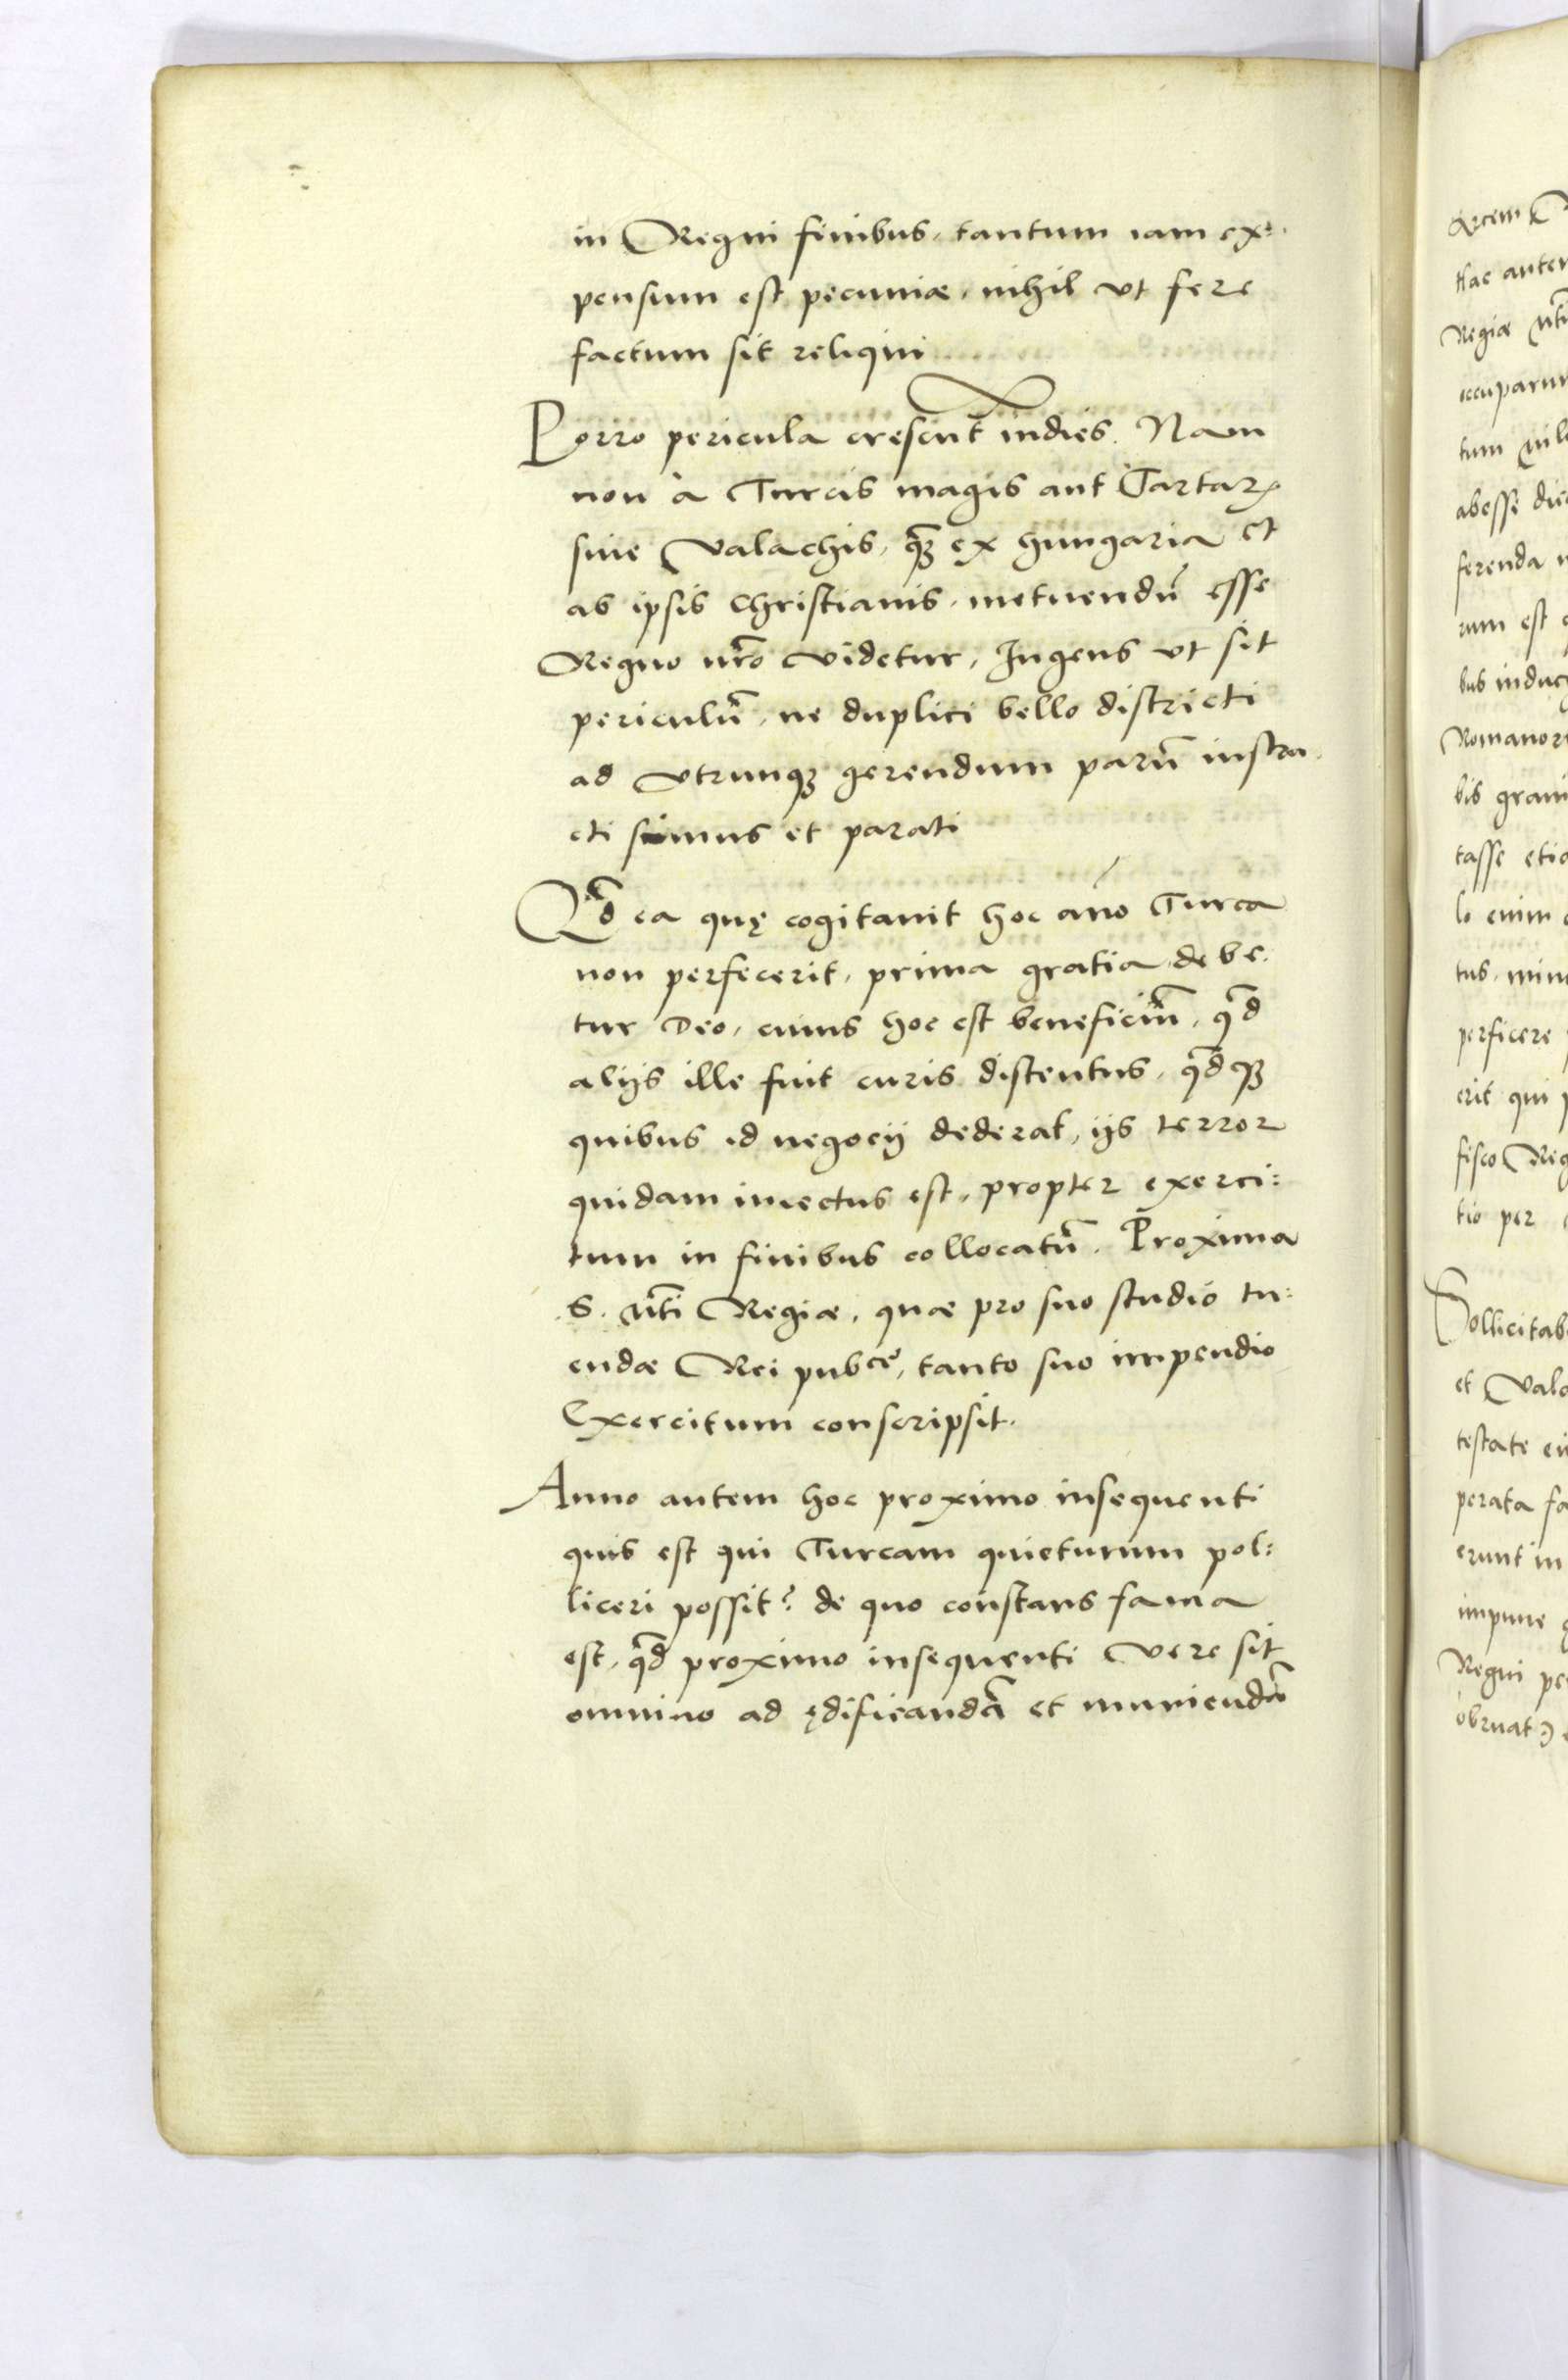 in Regni finibus, tantum iam ex:
pensum est pecuniæ, nihil vt fere
factum sit reliqui
Porro pericula crescūt indies. Nam
non à Turcis magis aut Tartarꝭ
siue Valachis, quā ex hungaria et
ab ipsis christianis, metuendū esse
Regno nr̄o videtur, Ingens vt sit
periculū, ne duplici bello districti
ad vtrunqꝫ gerendum parū instru
cti simus et parati
Qd̄ ea quę cogitauit hoc an̄o Turca
non perfecerit, prima gratia debe
tur Deo, cuius hoc est beneficiū, qd̄
alijs ille fuit curis distentus, qd̄qꝫ
quibus id negocij dederat, ijs terror
quidam iniectus est, propter exerci:
tum in finibus collocatū. Proxima
S. Mti Regiæ, quæ pro suo studio tu:
endæ Rei pubcę, tanto suo impendio
Exercitum conscripsit.
Anno autem hoc proximo insequenti
quis est qui Turcam quieturum pol:
liceri possit? de quo constans fama
est, qd̄ proximo insequenti vere sit
omnino ad ędificandā et muniendā
Arcem
hac autem
Regiæ Mti
occuparun
tum
abesse
ferenda
rum est
bus induc
Romanor
bis graui
tasse etia
lo enim
tus, minu
perficere
erit qui
fisco Reg
tio per
Sollicitab
et Vala
testate
perata fa
erunt in
impune
Regni pe
obruat?